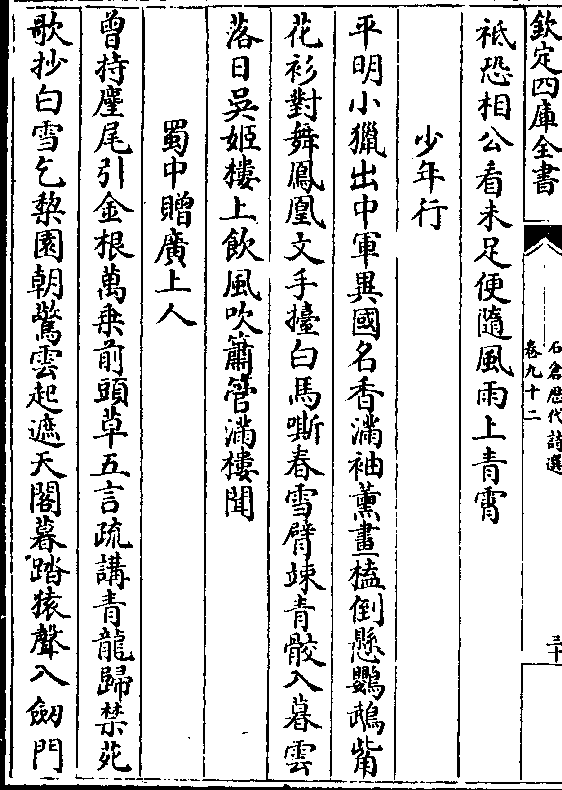 欽定四庫全書
石倉歴代詩選
卷九十二
三十
祗恐相公看未足便隨風雨上青霄
少年行
平明小獵出中軍異國名香滿袖薰畫榼倒懸鸚鵡觜
花衫對舞鳳凰文手擡白馬嘶春雪臂竦青骹入暮雲
落日吳姬樓上飲風吹簫管滿樓聞
蜀中贈廣上人
曾持麈尾引金根萬乗前頭草五言疏講青龍歸禁苑
歌抄白雪乞棃園朝驚雲起遮天閣暮踏猿聲入劒門